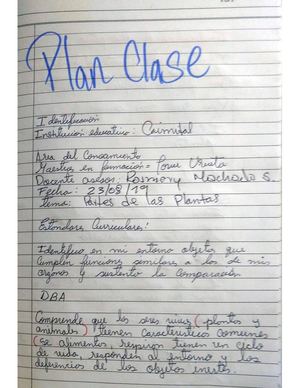 Plan Clase
Identificación
Institución educativa: Caimital
Area del Conocimiento
Maestra en formación = Urueta
Docente asesor: Rosmery Machado S.
Fecha: 23/08/19
tema: Partes de las Plantas
Estandares Curriculares:
Identifico en mi entorno objetos que
cumplen funciones similares a los de mis
organos y sustento la comparación
DBA
Comprende que los seres vivos (plantas y
animales) tienen caracteristicas comunes
(se alimentan, respiran tienen un ciclo
de vida, responden al entorno y los
diferencia de los objetos inertes.